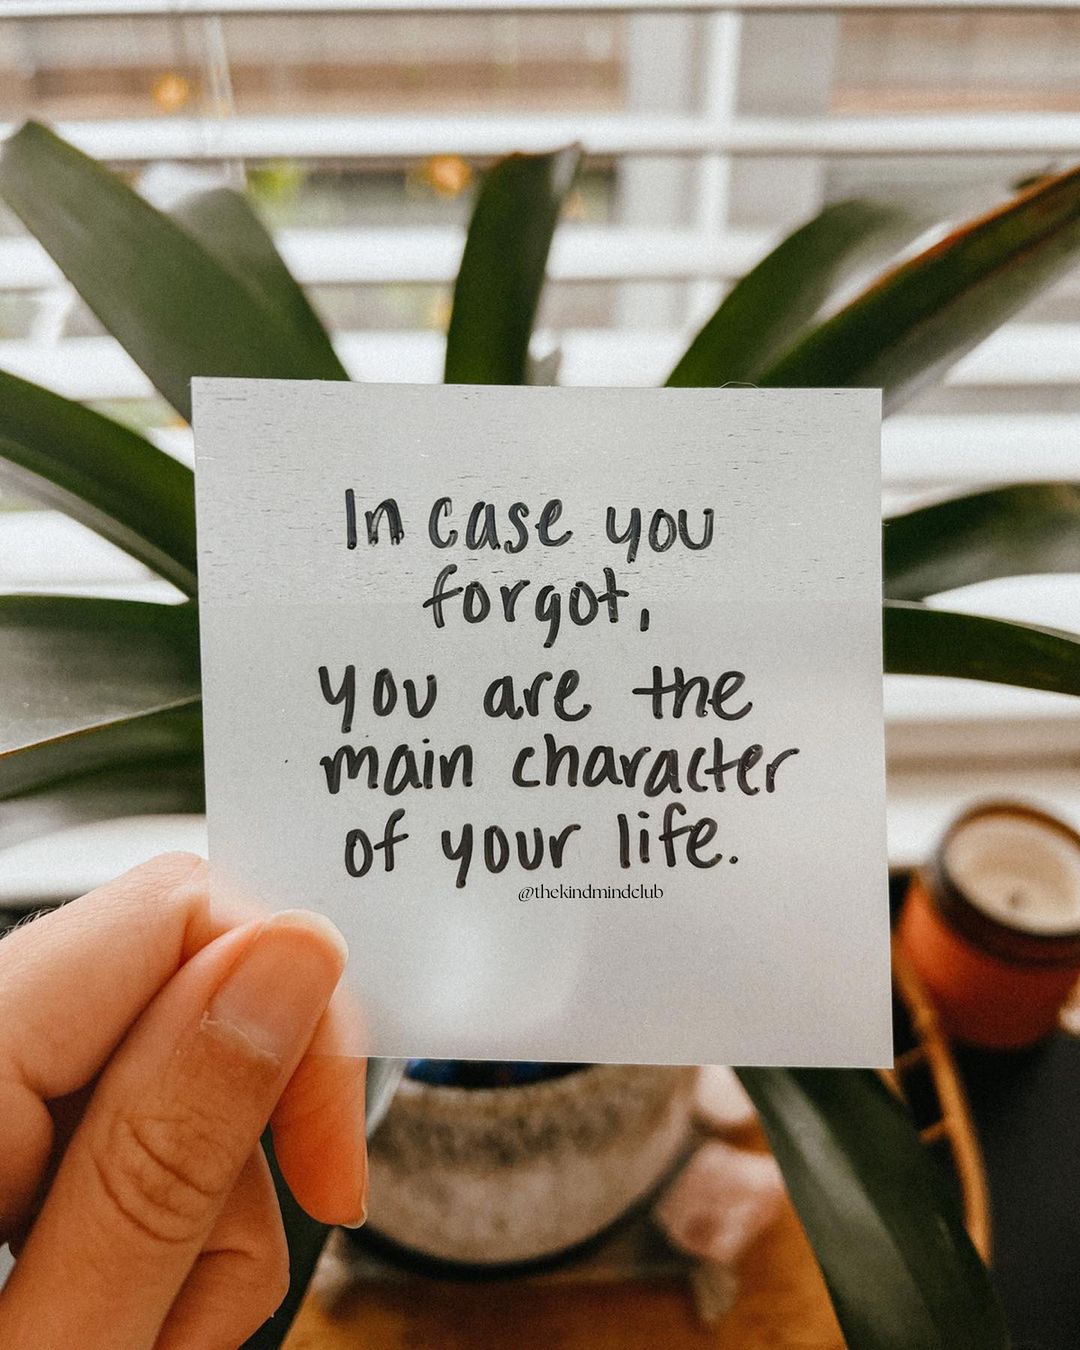 In case you
forgot,
you are the
main character
of your life.
@thekindmindclub